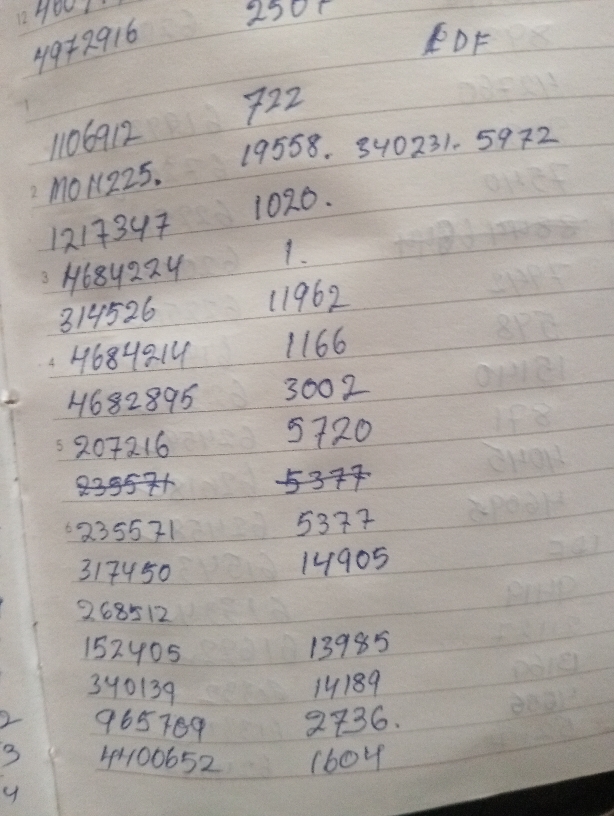 4972916
EDF
1106912 722
19558. 340231. 5972
1217347 1020.
4684224 1.
314526 11962
4684214 1166
4682895 3002
207216 5720
235571 5377
235571 5377
317450 14905
268512
152405 13985
340139 14189
965769 2736.
4400652 1604